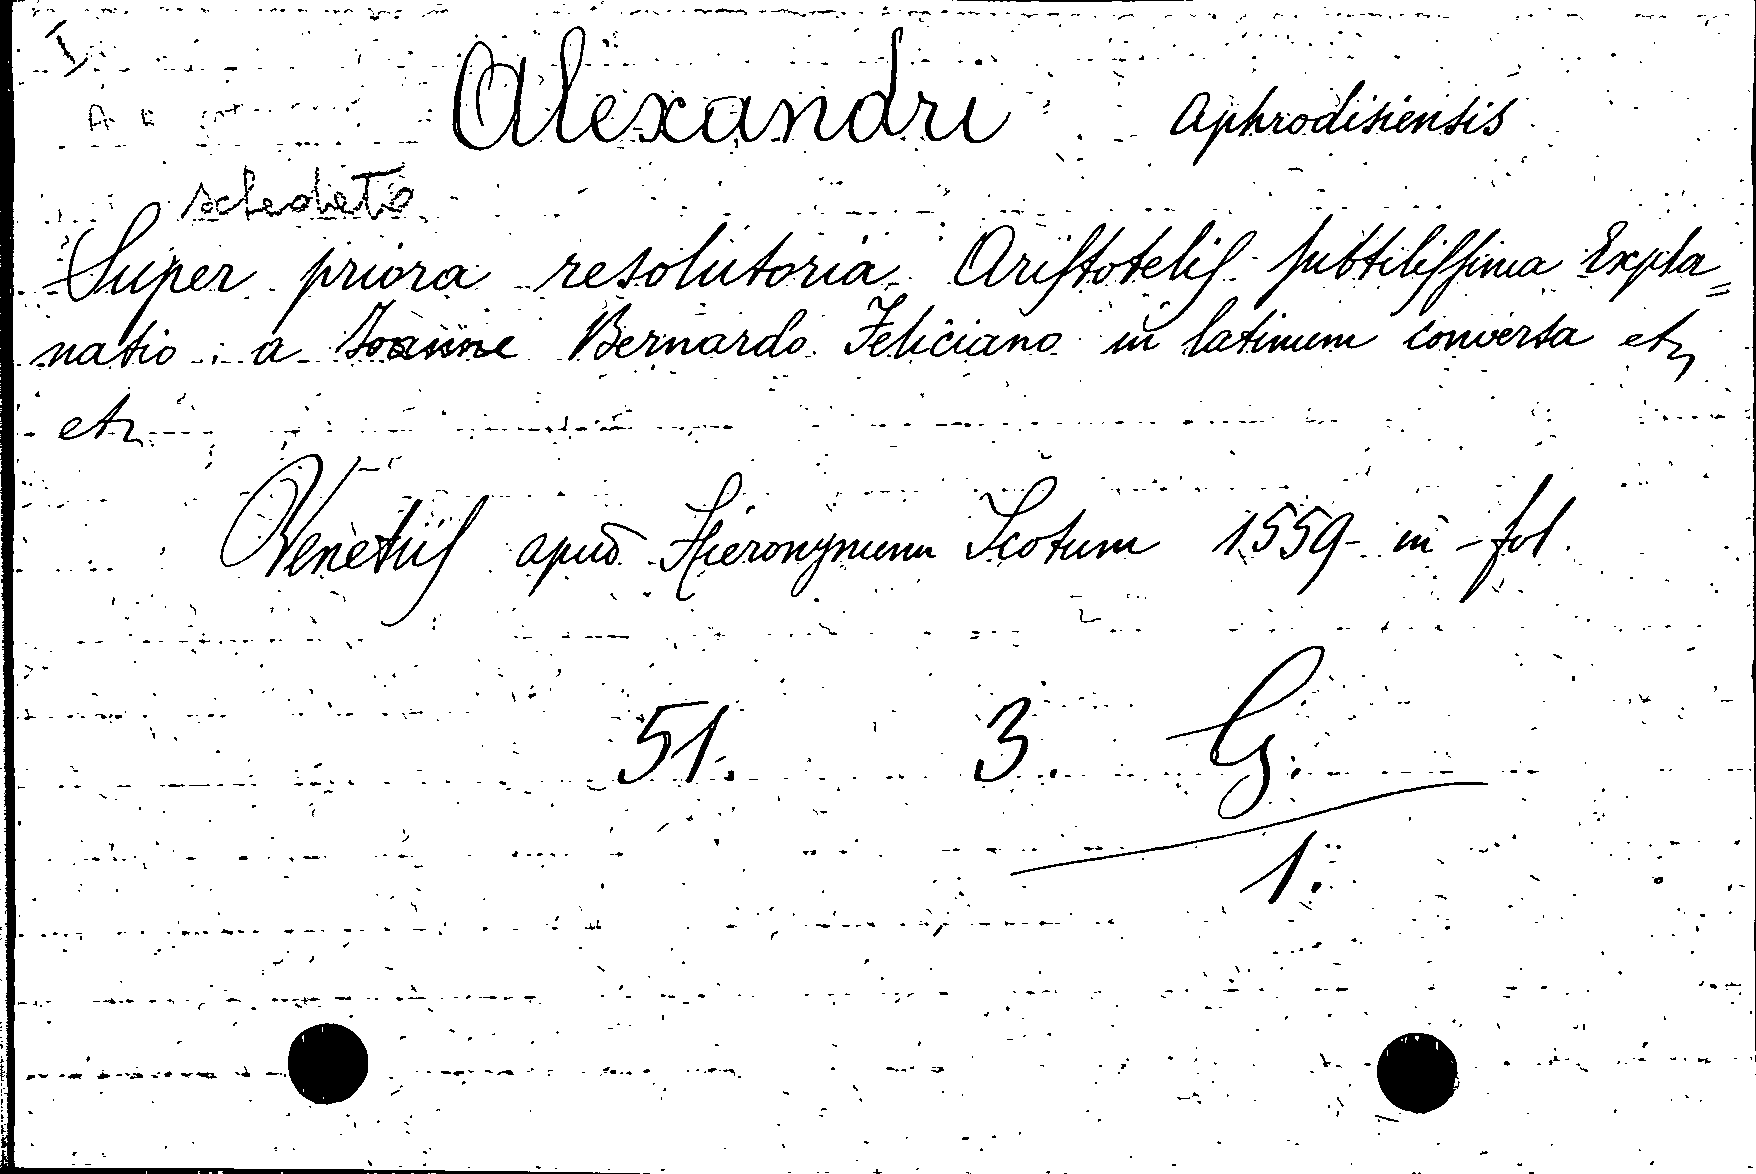 I
Alexandri Aphrodisiensis
schedato
Super priora resolutoria Ariſtoteliſ ſubtiliſſima Expla=
natio: a Joanne Bernardo Feliciano in latinum conversa etz
etz
Venetiiſ apud Hieronymum Scotum 1559 - in - fol.
51. 3. G.
1.